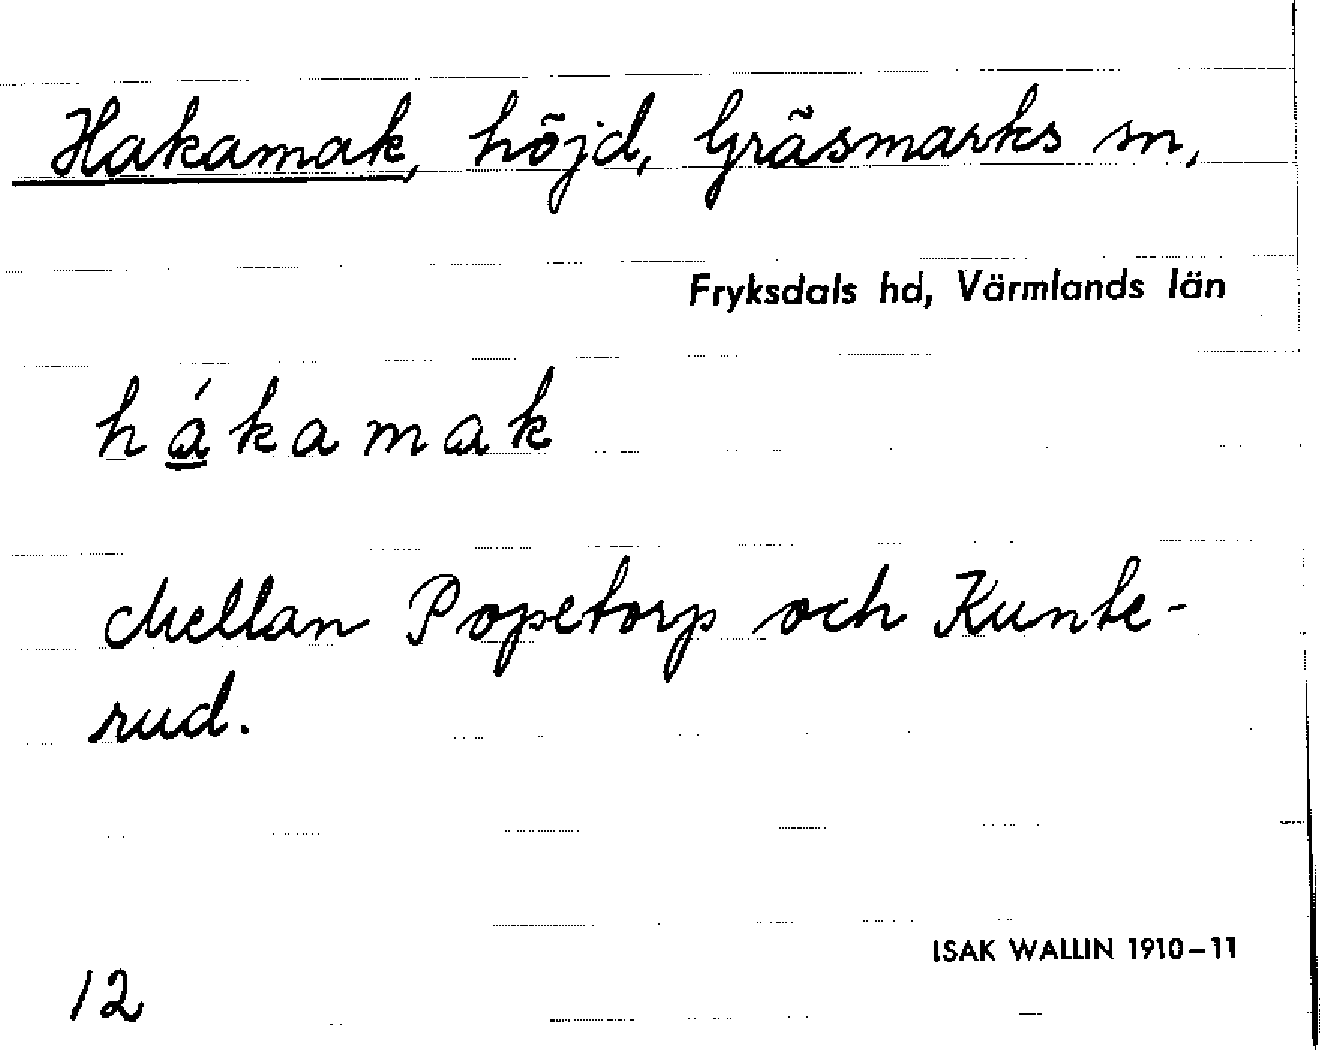 Hakamak, höjd, Gräsmarks sn,
Fryksdals hd, Värmlands län
hákamak
Mellan Popetorp och Kunte-
rud.
ISAK WALLIN 1910–11
12